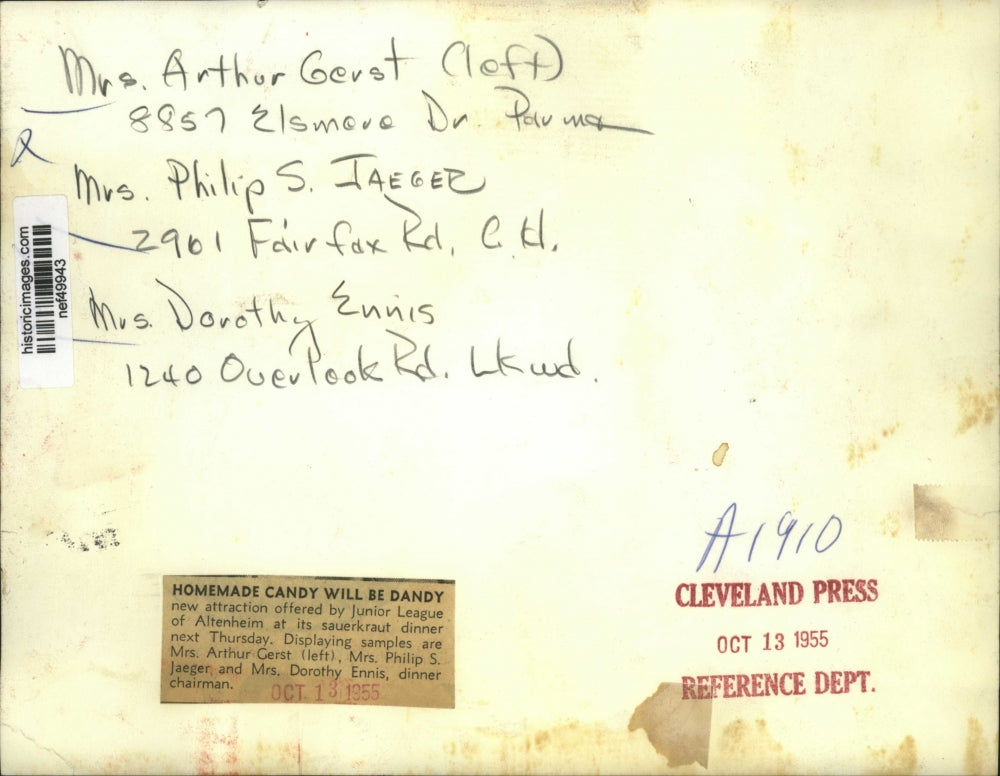 Mrs. Arthur Gerst (left)
8857 Elsmere Dr. Parma
Mrs. Philip S. JAEGER
2961 Fairfax Rd, C.H.
Mrs. Dorothy Ennis
1240 Overlook Rd. Lkwd.
historicimages.com
nef49943
A1910
CLEVELAND PRESS
OCT 13 1955
REFERENCE DEPT.
HOMEMADE CANDY WILL BE DANDY
new attraction offered by Junior League
of Altenheim at its sauerkraut dinner
next Thursday. Displaying samples are
Mrs. Arthur Gerst (left), Mrs. Philip S.
Jaeger and Mrs. Dorothy Ennis, dinner
chairman.
OCT 13 1955